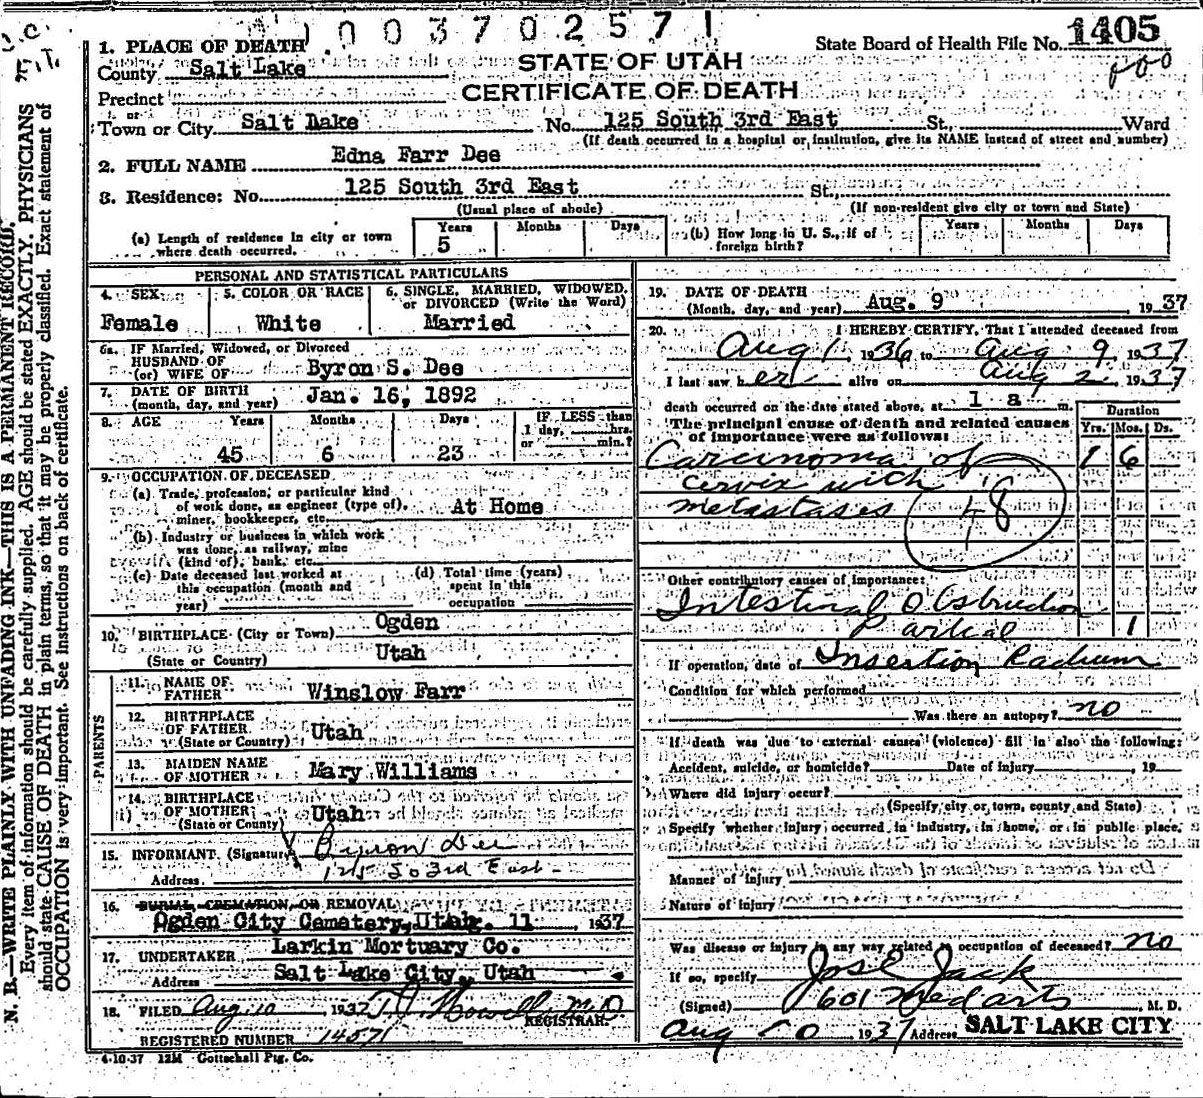 1003702571
State Board of Health File No. 1405
1. PLACE OF DEATH
County Salt Lake
STATE OF UTAH
Precinct
CERTIFICATE OF DEATH
Town or City Salt Lake No. 125 South 3rd East St., Ward
(If death occurred in a hospital or institution, give its NAME instead of street and number)
2. FULL NAME Edna Farr Dee
3. Residence: No. 125 South 3rd East St.
(Usual place of abode) (If non-resident give city or town and State)
(a) Length of residence in city or town where death occurred. Years 5 Months Days (b) How long in U. S., if of foreign birth? Years Months Days
PERSONAL AND STATISTICAL PARTICULARS
4. SEX 5. COLOR OR RACE 6. SINGLE, MARRIED, WIDOWED, or DIVORCED (Write the Word)
Female White Married
6a. IF Married, Widowed, or Divorced
HUSBAND OF
(or) WIFE OF Byron S. Dee
7. DATE OF BIRTH
(month, day, and year) Jan. 16, 1892
8. AGE Years Months Days IF LESS than 1 day, hrs. or min.?
45 6 23
9. OCCUPATION OF DECEASED
(a) Trade, profession, or particular kind
of work done, as engineer (type of),
miner, bookkeeper, etc. At Home
(b) Industry or business in which work
was done, as railway, mine
(kind of), bank, etc.
(c) Date deceased last worked at
this occupation (month and
year)
(d) Total time (years)
spent in this
occupation
10. BIRTHPLACE (City or Town) Ogden
(State or Country) Utah
PARENTS
11. NAME OF
FATHER Winslow Farr
12. BIRTHPLACE
OF FATHER
(State or Country) Utah
13. MAIDEN NAME
OF MOTHER Mary Williams
14. BIRTHPLACE
OF MOTHER
(State or Country) Utah
15. INFORMANT (Signature) Byron Dee
Address 125 So 3rd East
16. BURIAL, CREMATION, OR REMOVAL
Ogden City Cemetery, Utah 11 1937
17. UNDERTAKER Larkin Mortuary Co.
Address Salt Lake City, Utah
18. FILED Aug 10, 1937 Howell M.D
REGISTRAR.
REGISTERED NUMBER 14571
4-10-37 12M Gottschall Ptg. Co.
19. DATE OF DEATH
(Month, day, and year) Aug. 9 1937
20. I HEREBY CERTIFY, That I attended deceased from
Aug 1 1936 to Aug 9 1937
I last saw her alive on Aug 2 1937
death occurred on the date stated above, at 1 a m.
The principal cause of death and related causes
of importance were as follows:
Duration
Yrs. Mos. Ds.
Carcinoma of 1 6
cervix with
metastases
48
Other contributory causes of importance:
Intestinal Obstruction
Partial 1
If operation, date of Insertion Radium
Condition for which performed
Was there an autopsy? no
If death was due to external causes (violence) fill in also the following:
Accident, suicide, or homicide? Date of injury, 19
Where did injury occur?
(Specify city or town, county and State)
Specify whether injury occurred in industry, in home, or in public place,
Manner of injury
Nature of injury
Was disease or injury in any way related to occupation of deceased? no
If so, specify
(Signed) Jos E Jack M. D.
601 Med arts
Aug 10 1937 Address SALT LAKE CITY
N. B.—WRITE PLAINLY WITH UNFADING INK—THIS IS A PERMANENT RECORD.
Every item of information should be carefully supplied. AGE should be stated EXACTLY. PHYSICIANS
should state CAUSE OF DEATH in plain terms, so that it may be properly classified. Exact statement of
OCCUPATION is very important. See instructions on back of certificate.